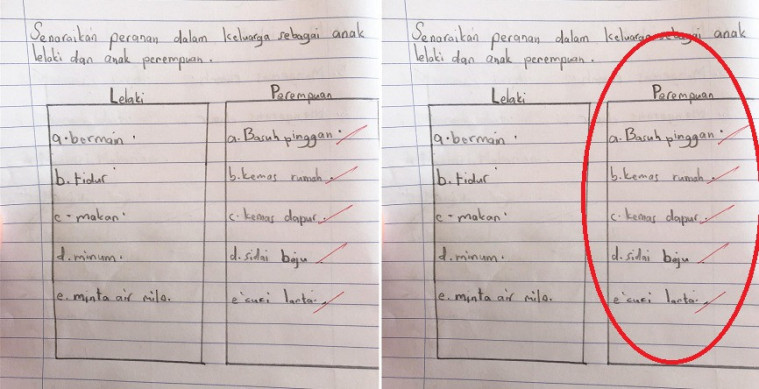 Senaraikan peranan dalam keluarga sebagai anak
lelaki dan anak perempuan.
Lelaki Perempuan
a. bermain. a. Basuh pinggan.
b. tidur b. kemas rumah.
c - makan. c. kemas dapur.
d. minum. d. sidai baju
e. minta air milo. e. cuci lantai.
Senaraikan peranan dalam keluarga sebagai anak
lelaki dan anak perempuan.
Lelaki Perempuan
a. bermain. a. Basuh pinggan.
b. tidur b. kemas rumah.
c - makan. c. kemas dapur.
d. minum. d. sidai baju
e. minta air milo. e. cuci lantai.